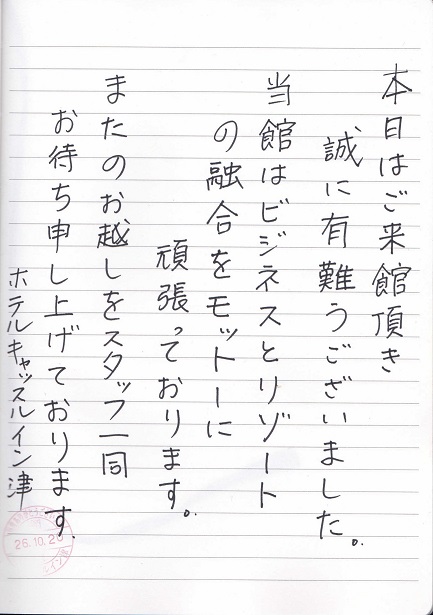 本日はご来館頂き
誠に有難うございました。
当館はビジネスとリゾート
の融合をモットーに
頑張っております。
またのお越しをスタッフ一同
お待ち申し上げております。
ホテルキャッスルイン津
26.10.20